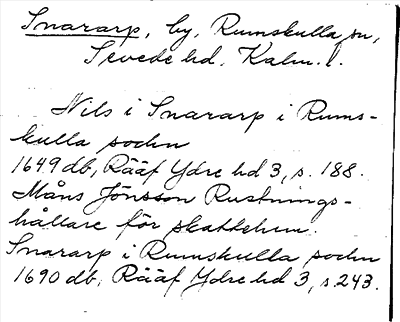 Snararp, by, Rumskulla sn,
Sevede hd, Kalm. l.
Nils i Snararp i Rums-
kulla sockn
1649 db, Rääf Ydre hd 3, s. 188.
Måns Jönsson Rustnings-
hållare för skattehm.
Snararp i Rumskulla sockn
1690 db, Rääf Ydre hd 3, s. 243.